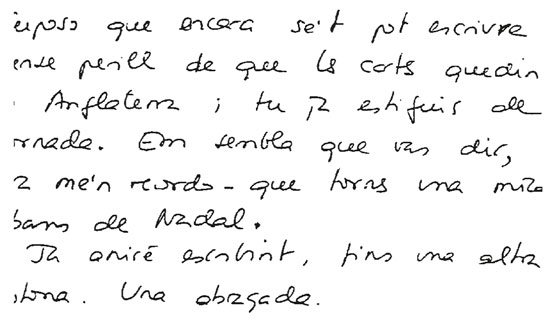 suposo que encara se't pot escriure
ense perill de que les carts quedin
Anglaterra i tu ja estiguis de
rnada. Em sembla que vas dir,
a me'n recordo - que tornes una mica
bans de Nadal.
Ja aniré escribint, fins una altra
stona. Una abraçada.